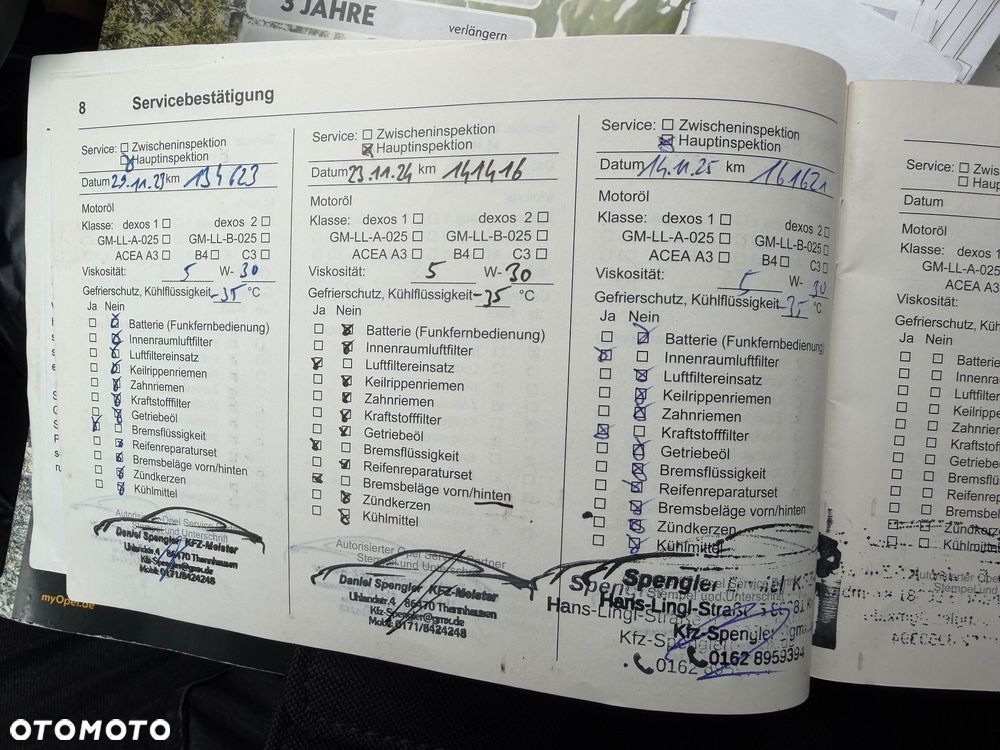 3 JAHRE
verlängern
8 Servicebestätigung
Service: Zwischeninspektion
Hauptinspektion
Datum 29.11.23 km 134623
Motoröl
Klasse: dexos 1 dexos 2
GM-LL-A-025 GM-LL-B-025
ACEA A3 B4 C3
Viskosität: 5 W- 30
Gefrierschutz, Kühlflüssigkeit -35 °C
Ja Nein
Batterie (Funkfernbedienung)
Innenraumluftfilter
Luftfiltereinsatz
Keilrippenriemen
Zahnriemen
Kraftstofffilter
Getriebeöl
Bremsflüssigkeit
Reifenreparaturset
Bremsbeläge vorn/hinten
Zündkerzen
Kühlmittel
Autorisierter Opel Service
Stempel und Unterschrift
Daniel Spengler KFZ-Meister
Uhlandstr.4 86470 Thannhausen
Kfz-Spengler@gmx.de
Mobil: 0171/8424248
Service: Zwischeninspektion
Hauptinspektion
Datum 23.11.24 km 141416
Motoröl
Klasse: dexos 1 dexos 2
GM-LL-A-025 GM-LL-B-025
ACEA A3 B4 C3
Viskosität: 5 W- 30
Gefrierschutz, Kühlflüssigkeit -35 °C
Ja Nein
Batterie (Funkfernbedienung)
Innenraumluftfilter
Luftfiltereinsatz
Keilrippenriemen
Zahnriemen
Kraftstofffilter
Getriebeöl
Bremsflüssigkeit
Reifenreparaturset
Bremsbeläge vorn/hinten
Zündkerzen
Kühlmittel
Autorisierter Opel
Stempel und Unterschrift
Daniel Spengler KFZ-Meister
Uhlandstr.4 86470 Thannhausen
Kfz-Spengler@gmx.de
Mobil: 0171/8424248
Service: Zwischeninspektion
Hauptinspektion
Datum 14.11.25 km 161621
Motoröl
Klasse: dexos 1 dexos 2
GM-LL-A-025 GM-LL-B-025
ACEA A3 B4 C3
Viskosität: 5 W- 30
Gefrierschutz, Kühlflüssigkeit -35 °C
Ja Nein
Batterie (Funkfernbedienung)
Innenraumluftfilter
Luftfiltereinsatz
Keilrippenriemen
Zahnriemen
Kraftstofffilter
Getriebeöl
Bremsflüssigkeit
Reifenreparaturset
Bremsbeläge vorn/hinten
Zündkerzen
Kühlmittel
Stempel und Unterschrift
Spengler
Hans-Lingl-Straß
Kfz-Spengler
0162 8959394
Service: Zwis
Haup
Datum
Motoröl
Klasse: dexos 1
GM-LL-A-025
ACEA A3
Viskosität:
Gefrierschutz, Kühl
Ja Nein
Batterie
Innenra
Luftfilter
Keilripp
Zahnrie
Kraftstof
Getriebe
Bremsflü
Reifenre
Bremsbe
Zündker
Kühlmitte
Autorisierter Opel
Stempel und
myOpel.de
OTOMOTO